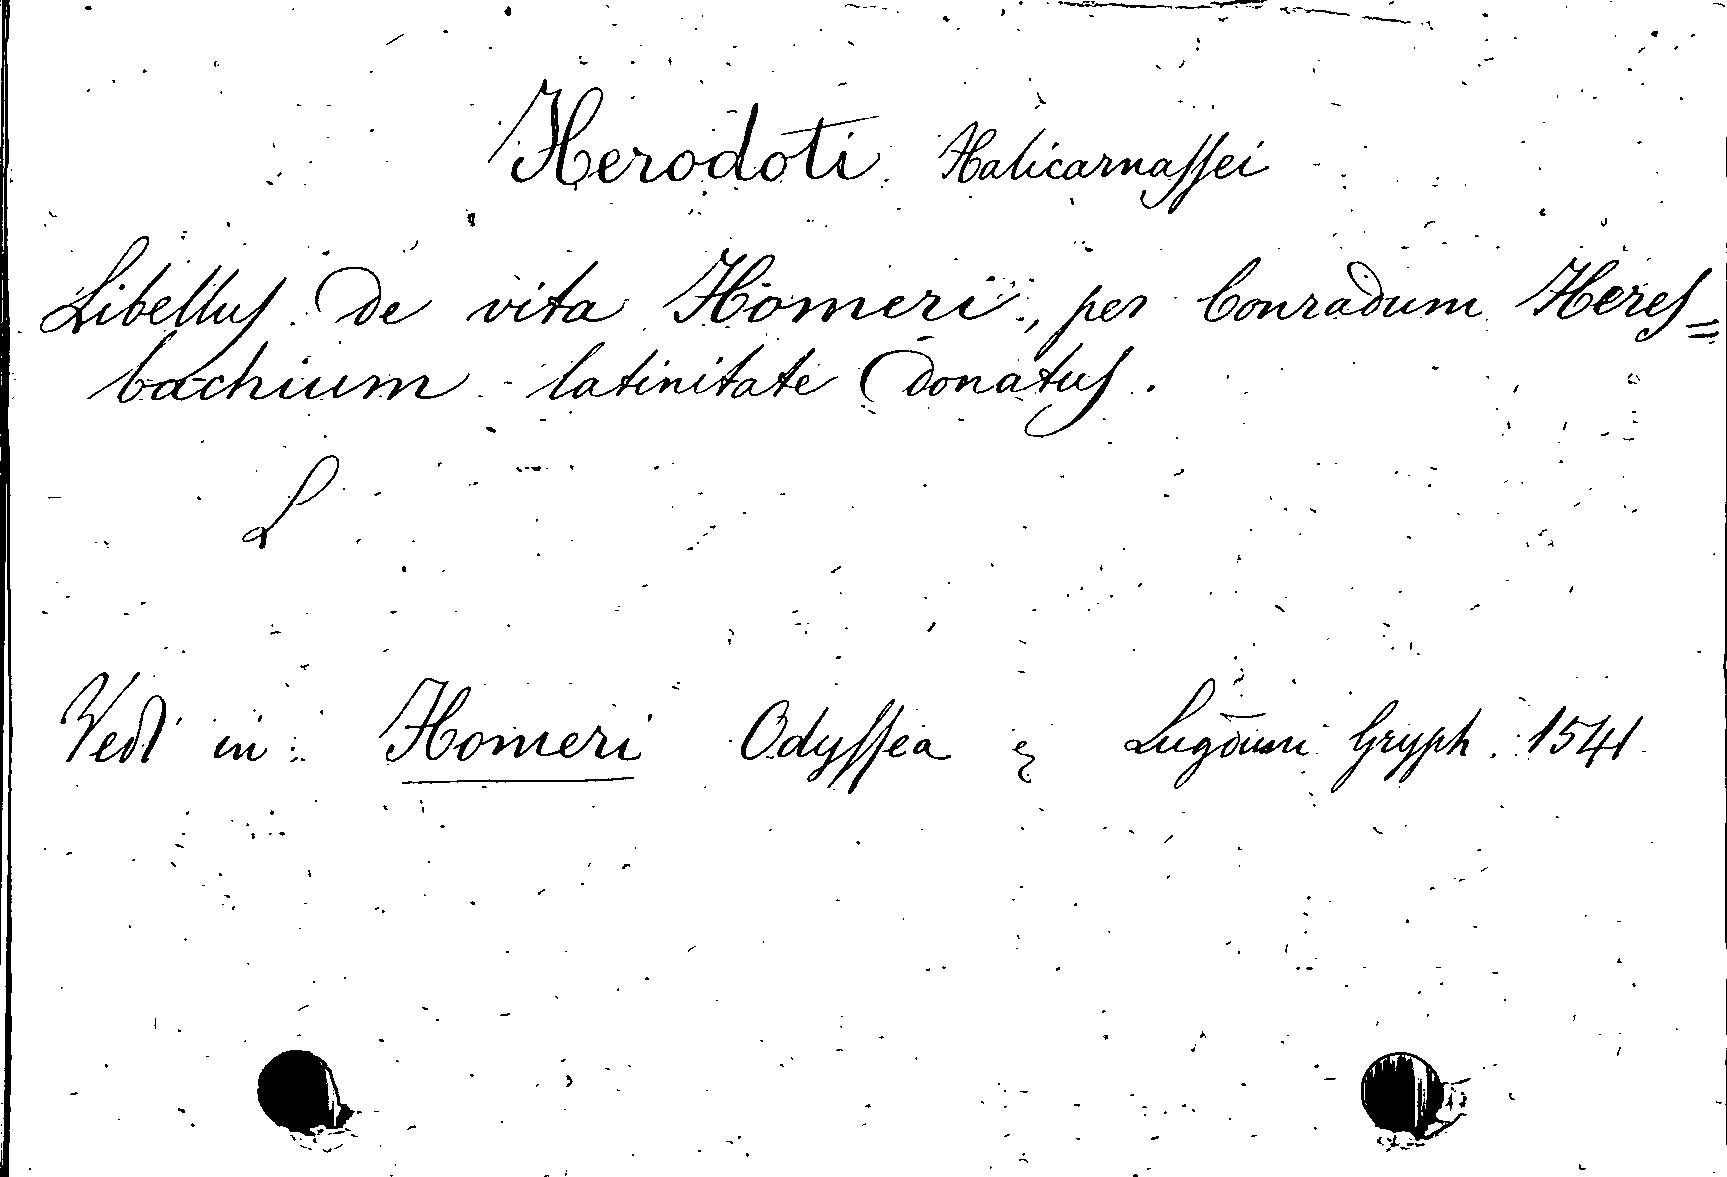 Herodoti Halicarnassei
Libellus de vita Homeri, per Conradum Heres=
bachium latinitate donatus.
L
Vedi in: Homeri Odyssea Lugduni Gryph. 1541